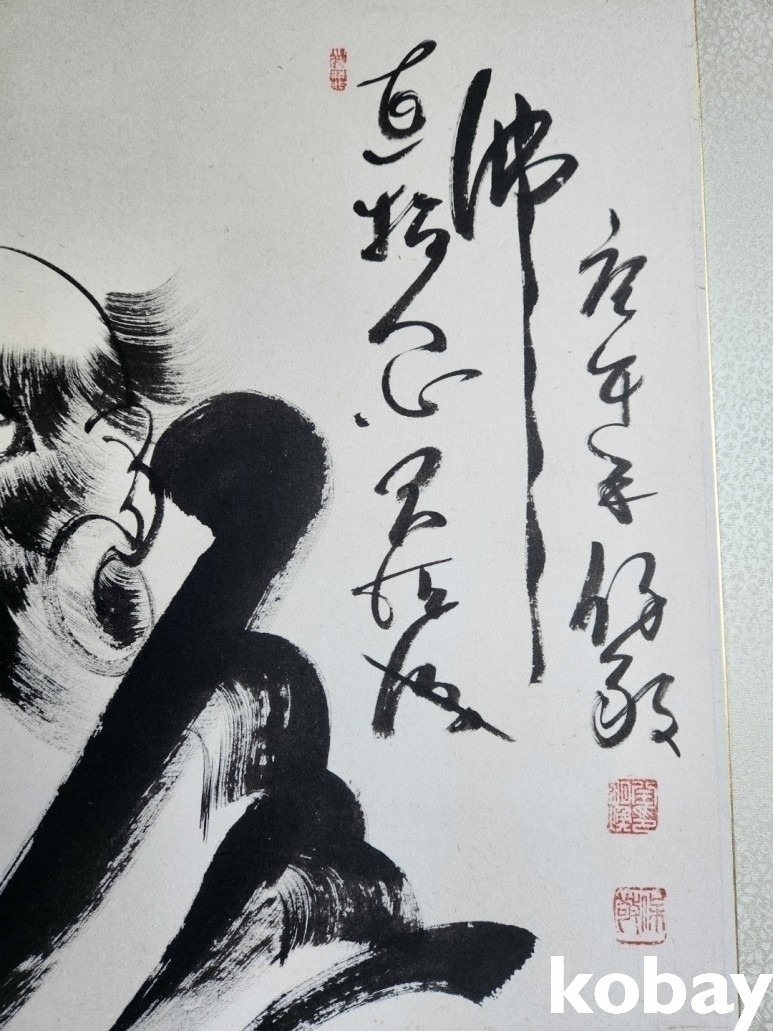 直指人心見性成
佛
庚午年
kobay